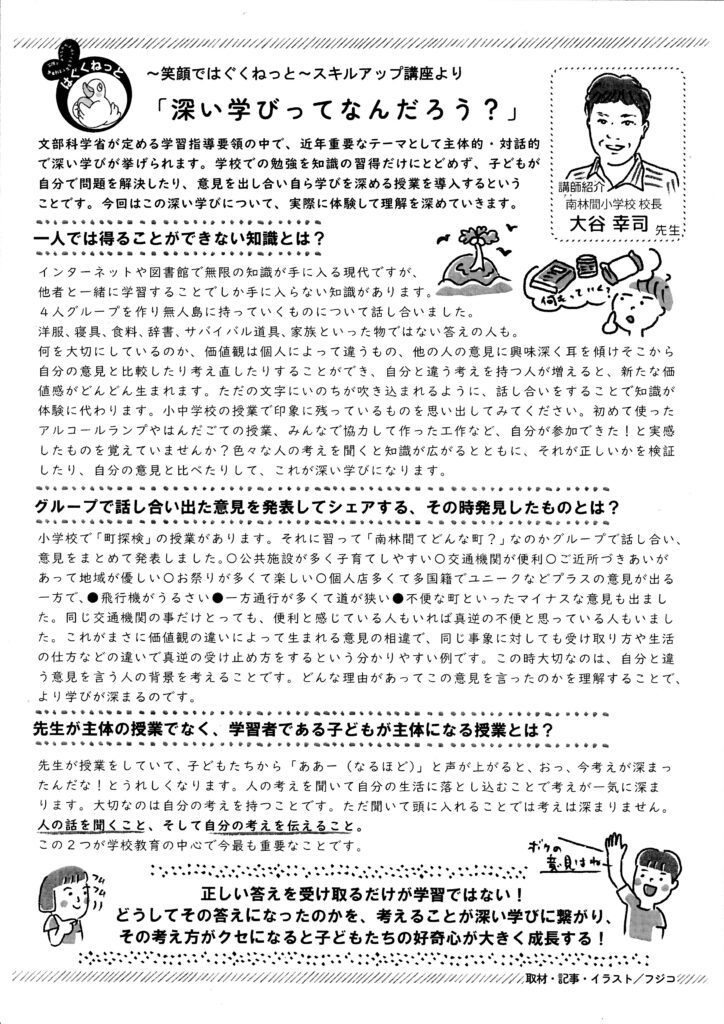 はぐくねっと
～笑顔ではぐくねっと～スキルアップ講座より
「深い学びってなんだろう？」
文部科学省が定める学習指導要領の中で、近年重要なテーマとして主体的・対話的
で深い学びが挙げられます。学校での勉強を知識の習得だけにとどめず、子どもが
自分で問題を解決したり、意見を出し合い自ら学びを深める授業を導入するという
ことです。今回はこの深い学びについて、実際に体験して理解を深めていきます。
講師紹介
南林間小学校 校長
大谷 幸司 先生
一人では得ることができない知識とは？
インターネットや図書館で無限の知識が手に入る現代ですが、
他者と一緒に学習することでしか手に入らない知識があります。
４人グループを作り無人島に持っていくものについて話し合いました。
洋服、寝具、食料、辞書、サバイバル道具、家族といった物ではない答えの人も。
何を大切にしているのか、価値観は個人によって違うもの、他の人の意見に興味深く耳を傾けそこから
自分の意見と比較したり考え直したりすることができ、自分と違う考えを持つ人が増えると、新たな価
値感がどんどん生まれます。ただの文字にいのちが吹き込まれるように、話し合いをすることで知識が
体験に代わります。小中学校の授業で印象に残っているものを思い出してみてください。初めて使った
アルコールランプやはんだごての授業、みんなで協力して作った工作など、自分が参加できた！と実感
したものを覚えていませんか？色々な人の考えを聞くと知識が広がるとともに、それが正しいかを検証
したり、自分の意見と比べたりして、これが深い学びになります。
何もっていく？
グループで話し合い出た意見を発表してシェアする、その時発見したものとは？
小学校で「町探検」の授業があります。それに習って「南林間てどんな町？」なのかグループで話し合い、
意見をまとめて発表しました。○公共施設が多く子育てしやすい○交通機関が便利○ご近所づきあいが
あって地域が優しい○お祭りが多くて楽しい○個人店多くて多国籍でユニークなどプラスの意見が出る
一方で、●飛行機がうるさい●一方通行が多くて道が狭い●不便な町といったマイナスな意見も出まし
た。同じ交通機関の事だけとっても、便利と感じている人もいれば真逆の不便と思っている人もいまし
た。これがまさに価値観の違いによって生まれる意見の相違で、同じ事象に対しても受け取り方や生活
の仕方などの違いで真逆の受け止め方をするという分かりやすい例です。この時大切なのは、自分と違
う意見を言う人の背景を考えることです。どんな理由があってこの意見を言ったのかを理解することで、
より学びが深まるのです。
先生が主体の授業でなく、学習者である子どもが主体になる授業とは？
先生が授業をしていて、子どもたちから「ああー（なるほど）」と声が上がると、おっ、今考えが深まっ
たんだな！とうれしくなります。人の考えを聞いて自分の生活に落とし込むことで考えが一気に深ま
ります。大切なのは自分の考えを持つことです。ただ聞いて頭に入れることでは考えは深まりません。
人の話を聞くこと、そして自分の考えを伝えること。
この２つが学校教育の中心で今最も重要なことです。
ボクの
意見はね
フムフム
正しい答えを受け取るだけが学習ではない！
どうしてその答えになったのかを、考えることが深い学びに繋がり、
その考え方がクセになると子どもたちの好奇心が大きく成長する！
取材・記事・イラスト／フジコ